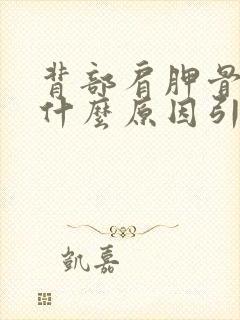 背部肩胛骨
什麼原因引
凱嘉